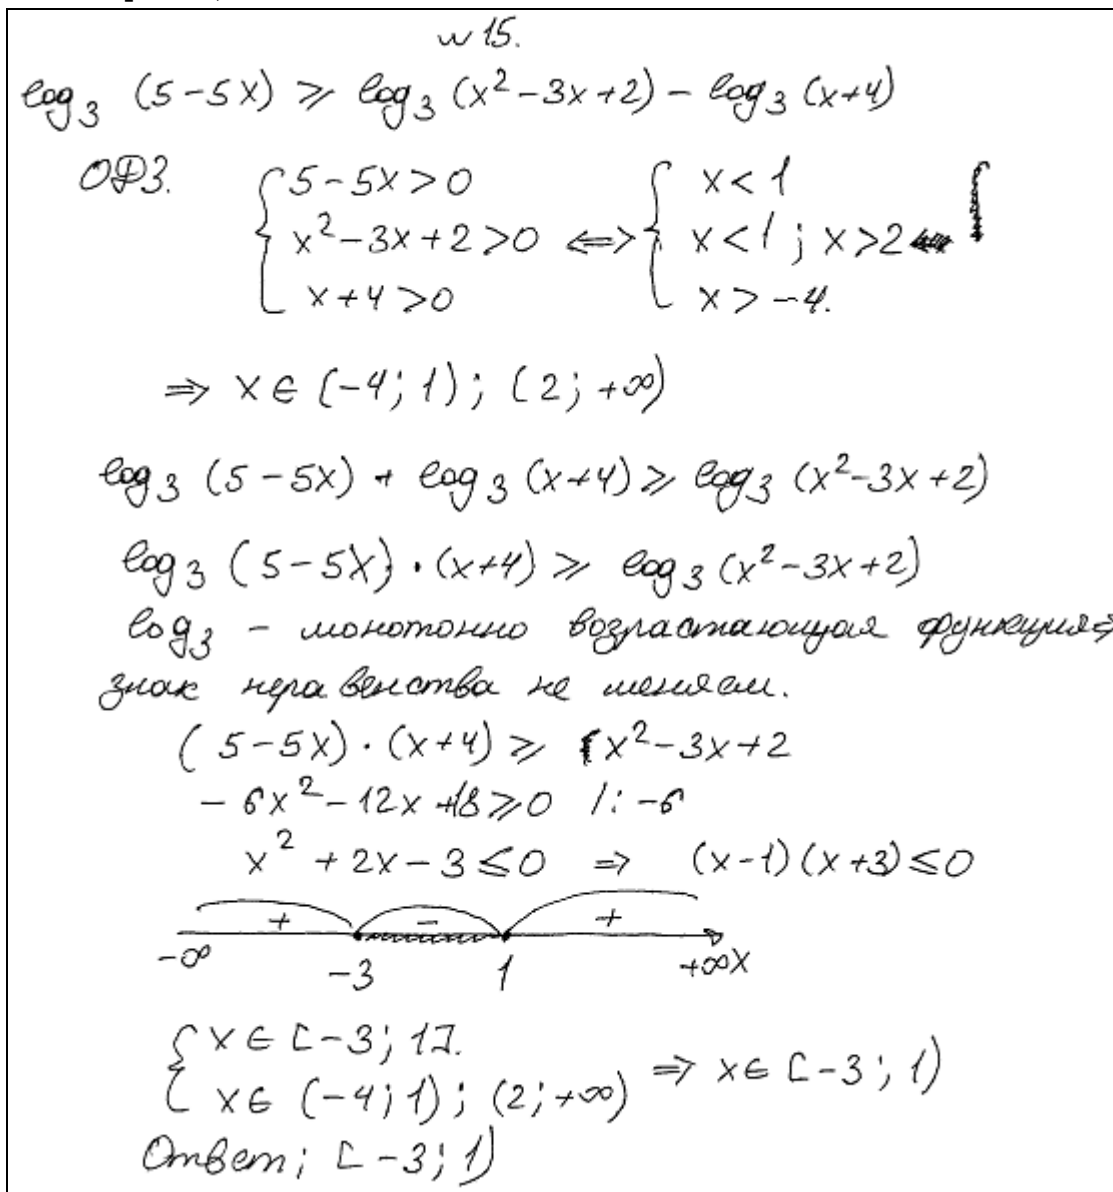 № 15.
log₃ (5-5x) ⩾ log₃ (x²-3x+2) - log₃ (x+4)
ОДЗ. { 5-5x>0 { x<1
x²-3x+2>0 ⇔ x<1 ; x>2
x+4>0 x>-4.
⇒ x ∈ (-4; 1) ; (2; +∞)
log₃ (5-5x) + log₃ (x+4) ⩾ log₃ (x²-3x+2)
log₃ (5-5x) · (x+4) ⩾ log₃ (x²-3x+2)
log₃ - монотонно возрастающая функция ⇒
знак неравенства не меняем.
(5-5x) · (x+4) ⩾ x²-3x+2
-6x²-12x+18⩾0 /: -6
x²+2x-3⩽0 ⇒ (x-1)(x+3)⩽0
+ - +
-∞ -3 1 +∞ x
{ x ∈ [-3; 1].
x ∈ (-4; 1) ; (2; +∞) ⇒ x ∈ [-3; 1)
Ответ; [-3; 1)